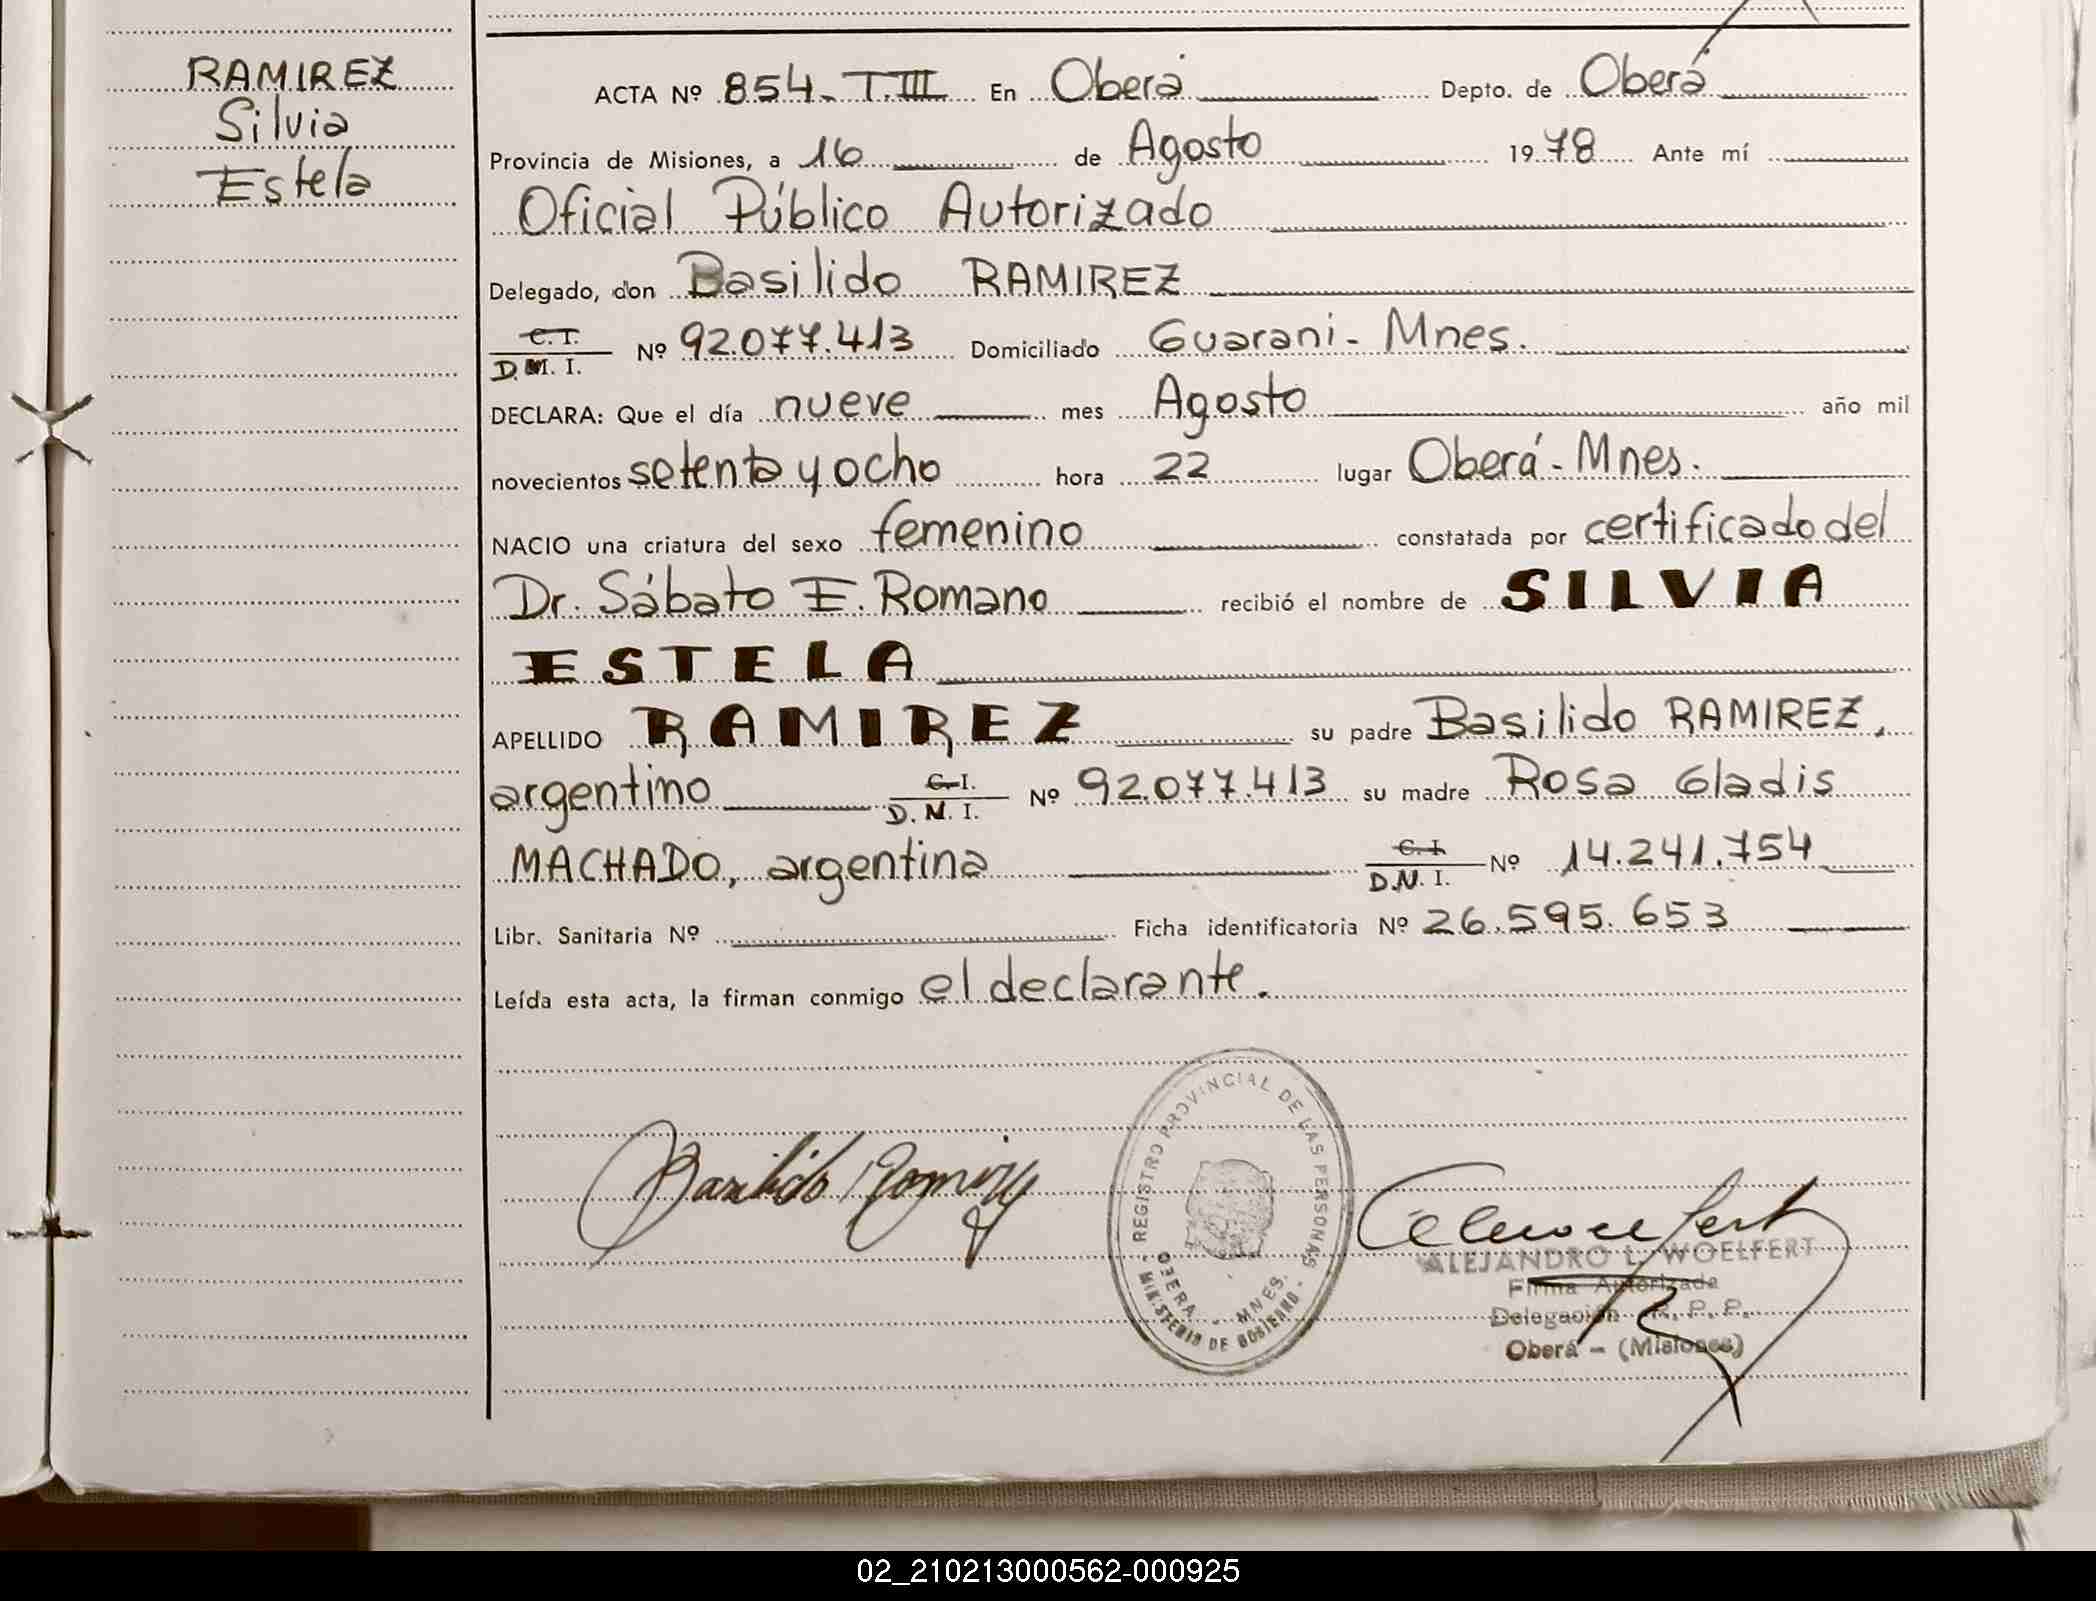 RAMIREZ
Silvia
Estela
ACTA Nº 854- T.III En Oberá Depto. de Oberá
Provincia de Misiones, a 16 de Agosto 1978 Ante mí
Oficial Público Autorizado
Delegado, don Basilido RAMIREZ
C. I.
D. M. I. Nº 92.077.413 Domiciliado Guarani - Mnes.
DECLARA: Que el día nueve mes Agosto año mil
novecientos setenta y ocho hora 22 lugar Oberá - Mnes.
NACIO una criatura del sexo femenino constatada por certificado del
Dr. Sábato E. Romano recibió el nombre de SILVIA
ESTELA
APELLIDO RAMIREZ su padre Basilido RAMIREZ,
argentino C. I.
D. N. I. Nº 92.077.413 su madre Rosa Gladis
MACHADO, argentina C. I.
D. N. I. Nº 14.241.754
Libr. Sanitaria Nº Ficha identificatoria Nº 26.595.653
Leída esta acta, la firman conmigo el declarante.
Basilido Ramirez
REGISTRO PROVINCIAL DE LAS PERSONAS
OBERA - MNES.
- MINISTERIO DE GOBIERNO -
ALEJANDRO L. WOELFERT
Firma Autorizada
Delegación R. P. P.
Oberá - (Misiones)
02_210213000562-000925